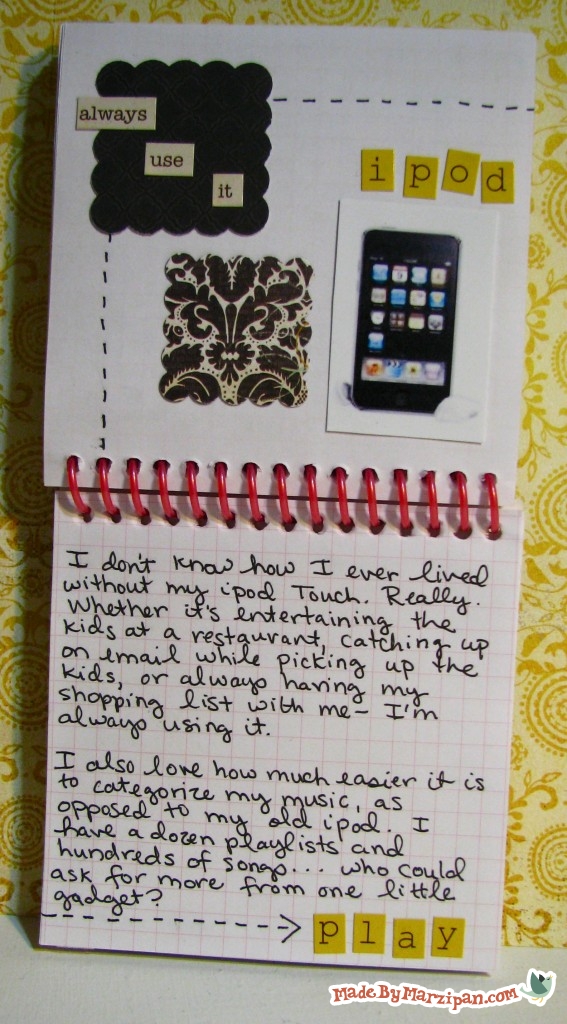 always
use
it
ipod
I don't know how I ever lived
without my ipod Touch. Really.
Whether it's entertaining the
kids at a restaurant, catching up
on email while picking up the
kids, or always having my
shopping list with me- I'm
always using it.
I also love how much easier it is
to categorize my music, as
opposed to my old ipod. I
have a dozen playlists and
hundreds of songs... who could
ask for more from one little
gadget?
play
MadeByMarzipan.com